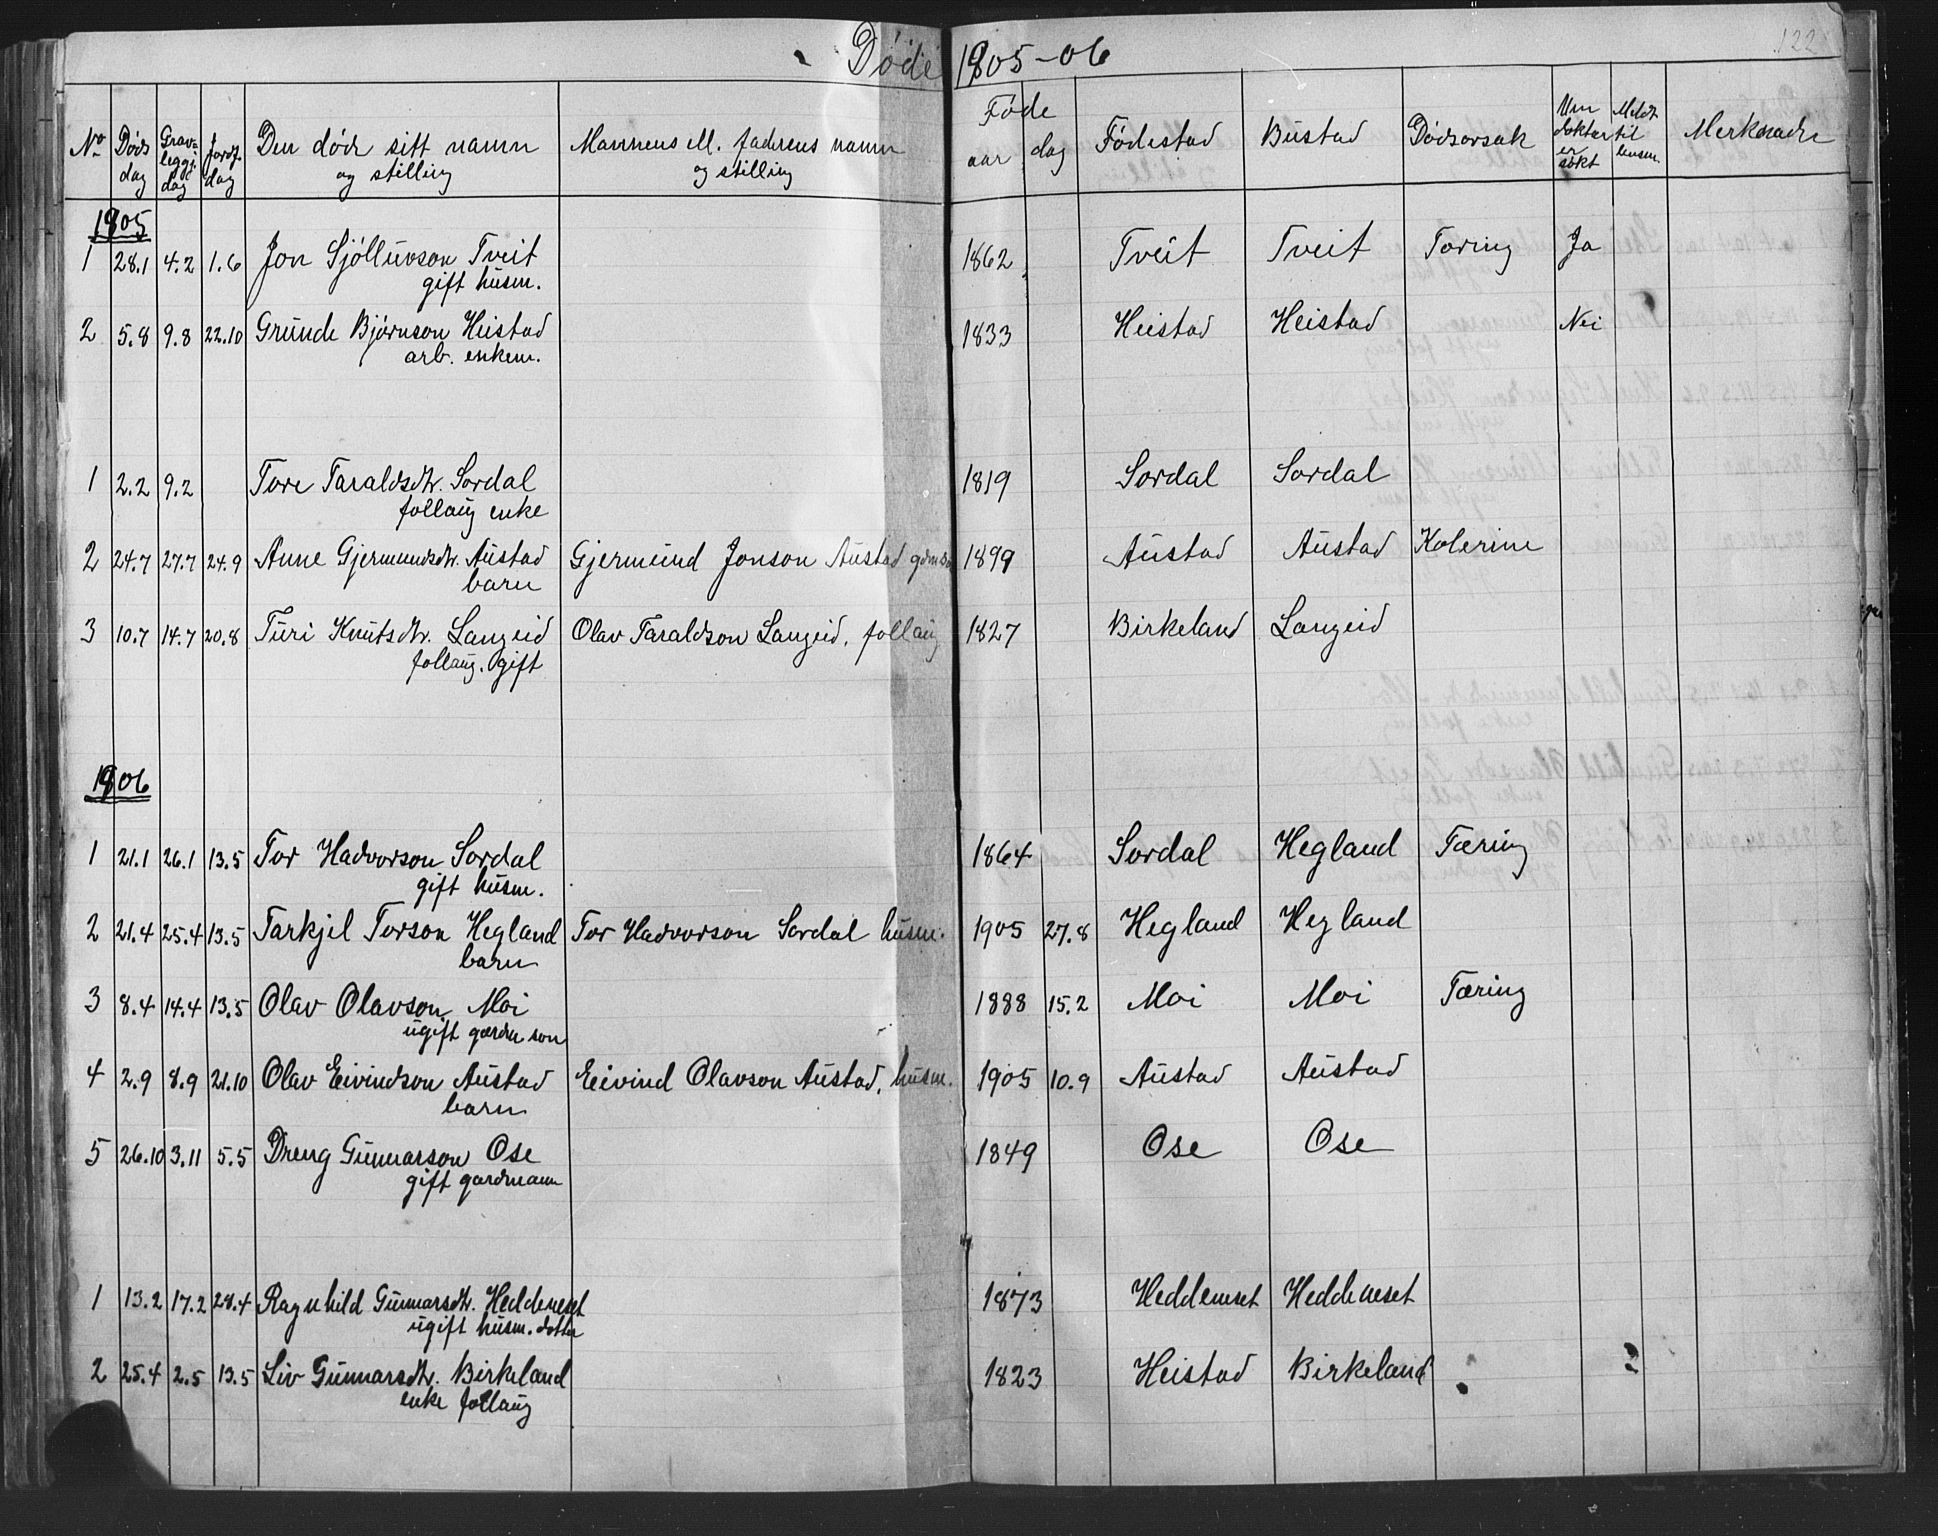 Døde 1905-06 122
No Døds dag Gravleggs dag Jordf. dag Den døde sitt namn og stilling Mannens ell. faderens namn og stilling Føde aar dag Fødestad Bustad Dødsorsak Um doktar er søkt Meldt til lensm. Merknader
1905
1 28.1 4.2 1.6 Jon Sjølluvson Tveit 1862 Tveit Tveit Tæring Ja
gift husm.
2 5.8 9.8 22.10 Grunde Bjørnson Heistad 1833 Heistad Heistad Nei
arb. enkem.
1 2.2 9.2 Tore Taraldsdtr. Sordal 1819 Sordal Sordal
follaug enke
2 24.7 27.7 24.9 Anne Gjermundsdtr. Austad Gjermund Jonson Austad 1899 Austad Austad Kolerine
barn
3 10.7 14.7 20.8 Turi Knutsdtr. Langeid Olav Taraldson Langeid, follaug 1827 Birkeland Langeid
follaug. gift
1906
1 21.1 26.1 13.5 Tor Hadvorson Sordal 1864 Sordal Hegland Tæring
gift husm.
2 21.4 25.4 13.5 Tarkjel Torson Hegland Tor Hadvorson Sordal husm. 1905 27.8 Hegland Hegland
barn
3 8.4 14.4 13.5 Olav Olavson Moi 1888 15.2 Moi Moi Tæring
ugift gardm son
4 2.9 8.9 21.10 Olav Eivindson Austad Eivind Olavson Austad, husm. 1905 10.9 Austad Austad
barn
5 26.10 3.11 5.5 Dreng Gunnarson Ose 1849 Ose Ose
gift gardmann
1 13.2 17.2 28.4 Ragnhild Gunnarsdtr. Heddeneset 1873 Heddeneset Heddeneset
ugift husm. dotter
2 25.4 2.5 13.5 Liv Gunnarsdtr. Birkeland 1823 Heistad Birkeland
enke follaug